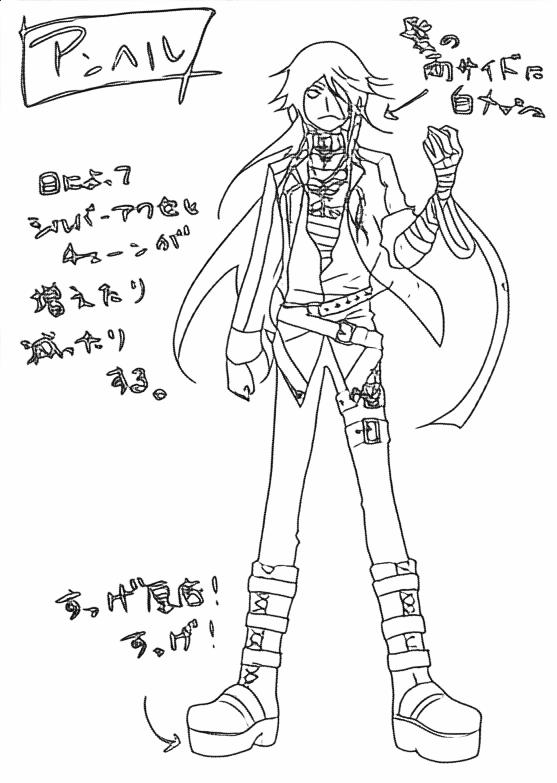 アンヘル
髪の
両サイドに
白メッシュ
日によって
シルバーアクセと
チェーンが
増えたり
減ったり
する。
すっげ厚底!
すっげ!